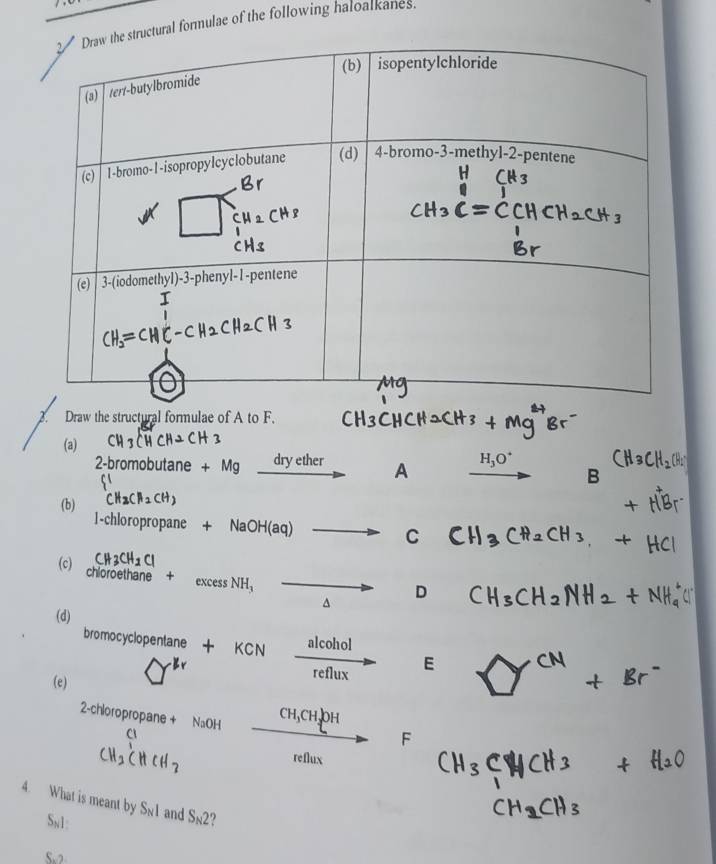 2. Draw the structural formulae of the following haloalkanes.
(a) tert-butylbromide
(b) isopentylchloride
(c) 1-bromo-1-isopropylcyclobutane
Br
CH2 CH3
CH3
(d) 4-bromo-3-methyl-2-pentene
H CH3
CH3 C = C CH CH2 CH3
Br
(e) 3-(iodomethyl)-3-phenyl-1-pentene
I
CH2=CHC-CH2CH2CH3
3. Draw the structural formulae of A to F.
Mg
CH3CHCH2CH3 + Mg2+ Br-
(a)
Br
CH3CHCH2CH3
2-bromobutane + Mg dry ether A H3O+ B
CH3CH2CH2
+ H+Br-
(b)
Cl
CH2CH2CH3
1-chloropropane + NaOH(aq) C CH3CH2CH3. + HCl
(c) CH3CH2Cl
chloroethane + excess NH3 Δ D CH3CH2NH2 + NH4+Cl-
(d)
bromocyclopentane + KCN alcohol reflux E
Br
CN + Br-
(e)
2-chloropropane + NaOH CH3CH2OH reflux F
Cl
CH3CHCH3
CH3CHCH3 + H2O
CH2CH3
4. What is meant by SN1 and SN2?
SN1:
SN2: